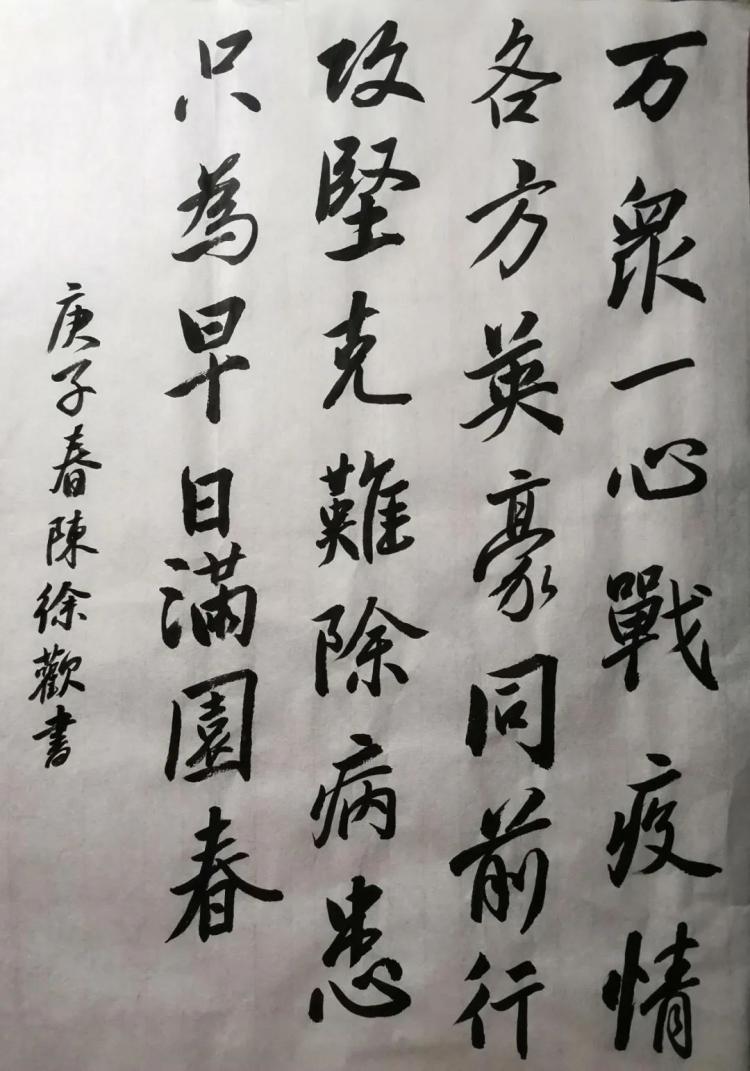 万衆一心戰疫情
各方英豪同前行
攻堅克難除病患
只為早日滿園春
庚子春陳徐歡書